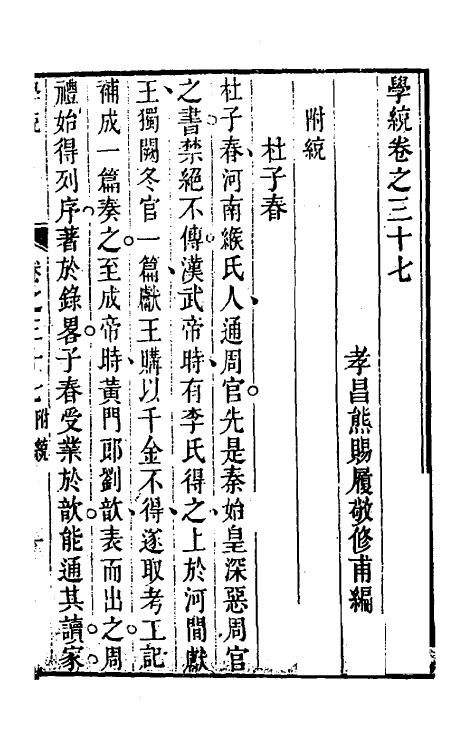 學統卷之三十七
孝昌熊賜履敬修甫編
附統
杜子春
杜子春河南緱氏人通周官先是秦始皇深惡周官
之書禁絕不傳漢武帝時有李氏得之上於河間獻
王獨闕冬官一篇獻王購以千金不得遂取考工記
補成一篇奏之至成帝時黃門郎劉歆表而出之周
禮始得列序著於錄畧子春受業於歆能通其讀家
卷之三十七 附統 一